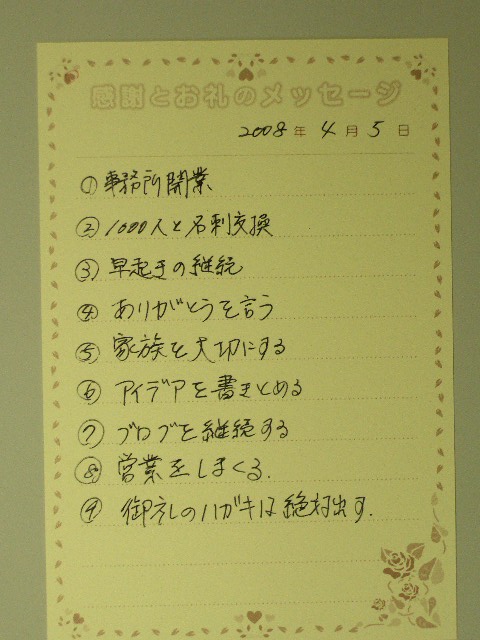 感謝とお礼のメッセージ
2008年 4月 5日
①事務所開業
②1000人と名刺交換
③早起きの継続
④ありがとうを言う
⑤家族を大切にする
⑥アイデアを書きとめる
⑦ブログを継続する
⑧営業をしまくる.
⑨御礼のハガキは絶対出す.